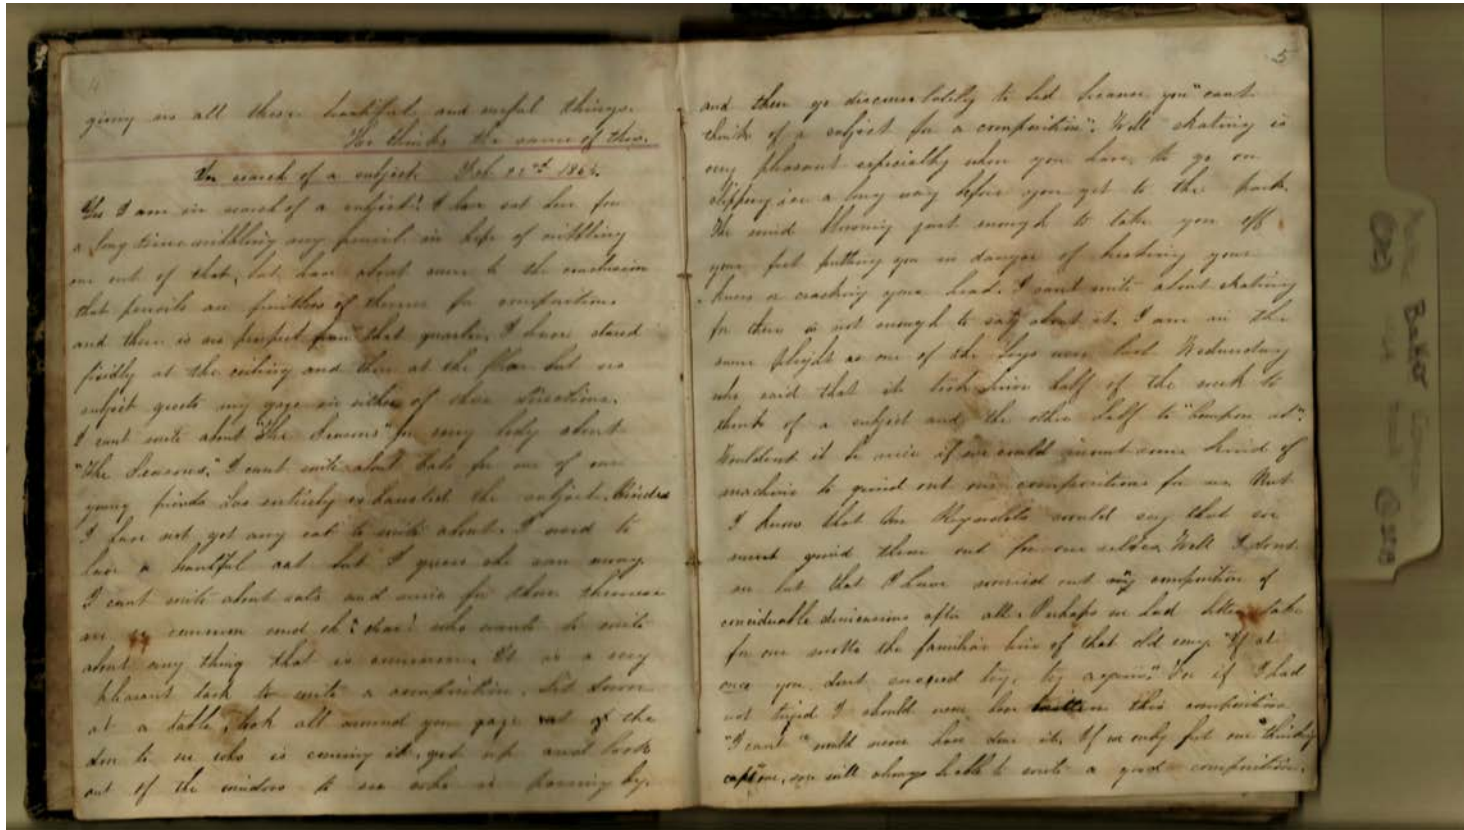 4
giving us all these beautiful and useful things.
He thinks the same of thee.
In search of a subject. Feb 1864.
Yes I am in search of a subject! I have sat here for
a long time nibbling my pencil in hope of nibbling
one out of that, but have about come to the conclusion
that pencils are fruitless of themes for compositions
and there is no prospect from that quarter. I have stared
fixedly at the ceiling and then at the floor but no
subject greets my gaze in either of those directions.
I cant write about "The Seasons" for every body about
"The Seasons." I cant write about Cats for one of our
young friends has entirely exhausted the subject. Besides
I have not got any cat to write about. I used to
have a beautiful cat but I guess she ran away.
I cant write about rats and mice for those themes
are so common and oh! dear! who wants to write
about any thing that is common. It is a very
pleasant task to write a composition. Sit down
at a table, look all around you gaze out of the
door to see who is coming in, get up and look
out of the window to see who is passing by.
5
and then go disconsolately to bed because you "cant
think of a subject for a composition". Well skating is
very pleasant especially when you have to go on
slippery ice a long way before you get to the park.
The wind blowing just enough to take you off
your feet putting you in danger of breaking your
knees or cracking your head. I cant write about skating
for there is not enough to say about it. I am in the
same plight as one of the boys was last Wednesday
who said that it took him half of the week to
think of a subject and the other half to "compose it".
Wouldent it be nice if we could invent some kind of
machine to grind out our compositions for us. But
I know that Mr Reynolds would say that we
must grind them out for our selves. Well I dont
see but that I have worried out my composition of
considerable dimensions after all. Perhaps we had better take
for our motto the familiar line of that old song "If at
once you dont succeed try, try again." For if I had
not tryed I should never have written this composition
"I cant" would never have done it. If we only put our "thinking
caps" on, we will always be able to write a good composition.